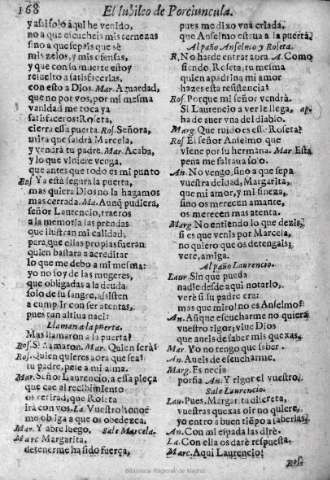 168 El Iubileo de Porciuncula.
y assi solo à quì he venido,
no a que escucheis mis ternezas
sino a que sepais que sè
mis zelos, y mis ofensas,
y que con la muerte estoy
resuelto a satisfacerlas,
con esto a Dios. Mar. Aguardad,
que no por vos, por mi mesma
vanidad me toca ya
satisfaceros: Roseta,
cierra essa puerta. Ros. Señora,
mira que saldrà Marcela,
y vendrà tu padre. Mar. Acaba,
y lo que viniere venga,
que antes que todo es mi punto
Ros. Ya està segura la puerta,
mas quiera Dios no la hagamos
mas cerrada. Ma. Aunq pudiera,
señor Laurencio, traeros
a la memoria las prendas
que ilustran mi calidad,
pero que ellas propias fueran
quien bastara a acreditar
lo que me debo a mi mesma:
yo no soy de las mugeres,
que obligadas a la deuda
solo de su sangre, assisten
a cumplir con ser atentas,
pues tan altiva naci:
Llaman a la puerta.
Mas llamaron a la puerta?
Ros. Si llamaron. Mar. Quien serà?
Ros. Quien quieres aora que sea?
tu padre, pese a mi alma.
Mar. Señor Laurencio, a essa pieça
que cae al recibimiento
os retirad, que Roseta
irà con vos. La. Vuestro honor
me obliga a que os obedezca.
Mar. Y abre luego. Sale Marcela.
Marc. Margarita,
detenerme ha sido fuerça,
pues me dixo vna criada,
que Anselmo estaua a la puerta.
Al paño Anselmo y Roseta.
R. No ha de entrar aora. A. Como
siendo, Roseta, tu mesma
quien apadrina mi amor
hazes esta resistencia?
Ros. Porque mi señor vendrà.
Si Laurencio a verle llega, ap.
ha de auer vna del diablo.
Marg. Que ruido es esse Roseta?
Ros. El señor Anselmo que
viene por su hermana. Mar. Esta
pena me faltaua solo.
An. No vengo, sino a que sepa
vuestra deidad, Margarita,
que mi amor, y mi fineza,
sino os merecen amante,
os merecen mas atenta.
Marg. No entiendo lo que dezis,
si es que venis por Marcela,
no quiero que os detengais,
vete, amiga.
Al paño Laurencio.
Laur. Sin que pueda
nadie desde aquì notarlo,
verè si su padre era;
mas que miro! no es Anselmo?
An. Aũque escucharme no quiera
vuestro rigor, viue Dios
que aueis de saber mis quexas.
Mar. Yo no tengo que saber.
An. Aueis de escucharme.
Marg. Es necia
porfia. An. Y rigor el vuestro.
Sale Laurencio.
Lau. Pues, Margarita discreta,
vuestras quexas oir no quiere,
yo entro a buen tiepo a saberlas.
An. Con mi espada las dirè.
La. Con ella os darè respuesta.
Marc. Aqui Laurencio!
Rose
Biblioteca Regional de Madrid